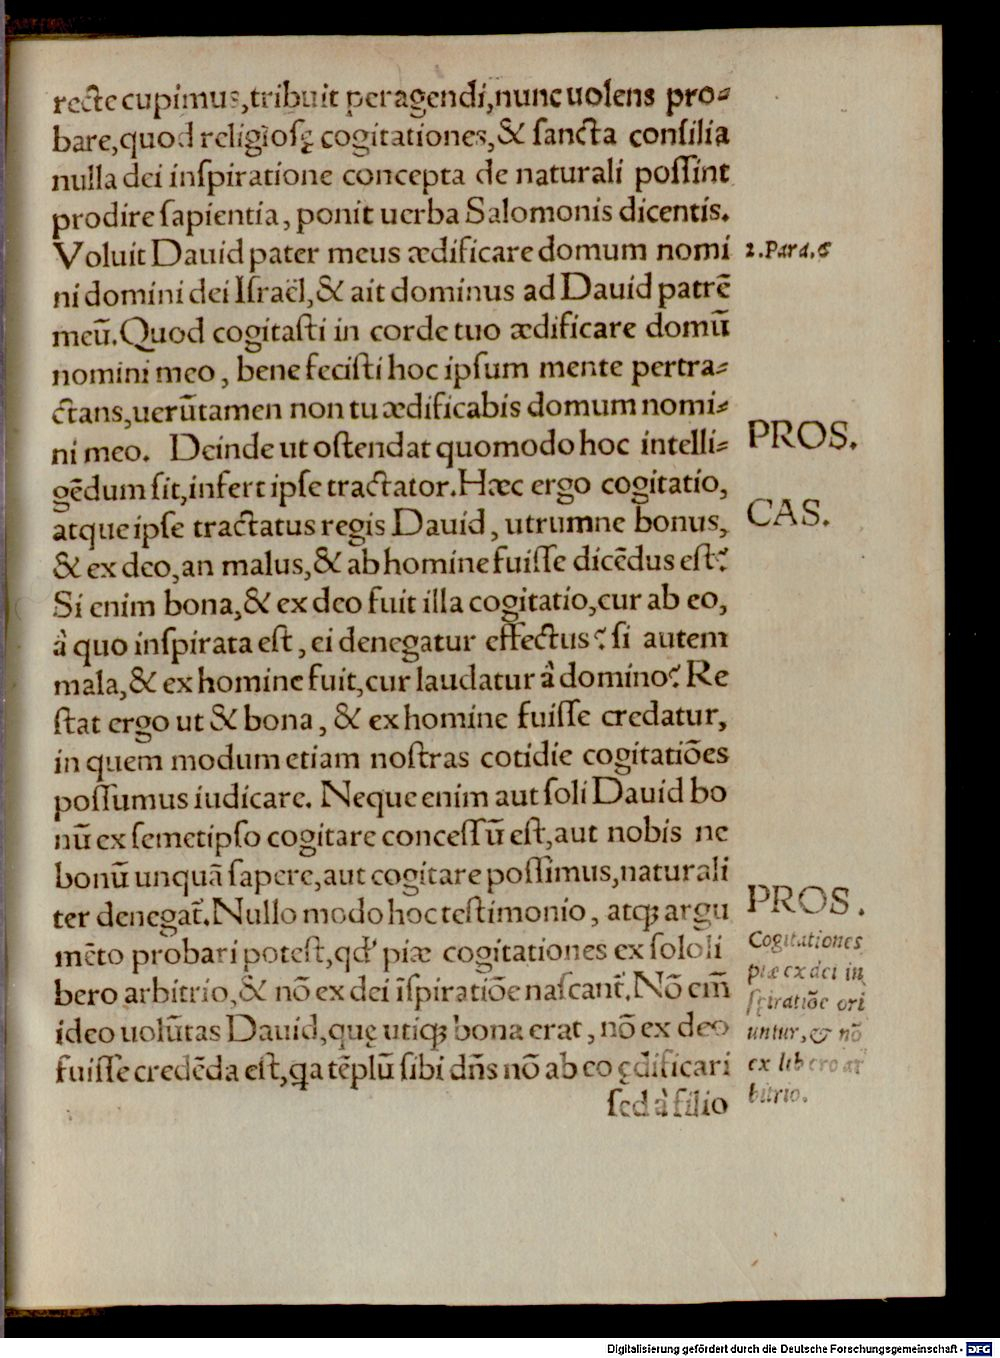 recte cupimus,tribuit peragendi,nunc uolens pro⸗
bare,quod religiosę cogitationes,& sancta consilia
nulla dei inspiratione concepta de naturali possint
prodire sapientia, ponit uerba Salomonis dicentis.
Voluit Dauid pater meus ædificare domum nomi
ni domini dei Israël,& ait dominus ad Dauid patrē
meū.Quod cogitasti in corde tuo ædificare domū
nomini meo, bene fecisti hoc ipsum mente pertra⸗
ctans,uerūtamen non tu ædificabis domum nomi⸗
ni meo. Deinde ut ostendat quomodo hoc intelli⸗
gēdum sit,infert ipse tractator.Hæc ergo cogitatio,
atque ipse tractatus regis Dauid, utrumne bonus,
& ex deo,an malus,& ab homine fuisse dicēdus est?
Si enim bona,& ex deo fuit illa cogitatio,cur ab eo,
à quo inspirata est, ei denegatur effectus? si autem
mala,& ex homine fuit,cur laudatur à domino? Re
stat ergo ut & bona, & ex homine fuisse credatur,
in quem modum etiam nostras cotidie cogitatiōes
possumus iudicare. Neque enim aut soli Dauid bo
nū ex semetipso cogitare concessū est,aut nobis ne
bonū unquā sapere,aut cogitare possimus,naturali
ter denegat᷑.Nullo modo hoc testimonio, atqꝫ argu
mēto probari potest,qd' piæ cogitationes ex solo li
bero arbitrio,& nō ex dei īspiratiōe nascant᷑.Nō em̄
ideo uolūtas Dauid,quę utiqꝫ bona erat, nō ex deo
fuisse credēda est,qa tēplū sibi dn̄s nō ab eo ędificari
sed à filio
2.Para.6
PROS.
CAS.
PROS.
Cogitationes
piæ ex dei in
spiratiōe ori
untur,& nō
ex libero ar
bitrio.
Digitalisierung gefördert durch die Deutsche Forschungsgemeinschaft - DFG